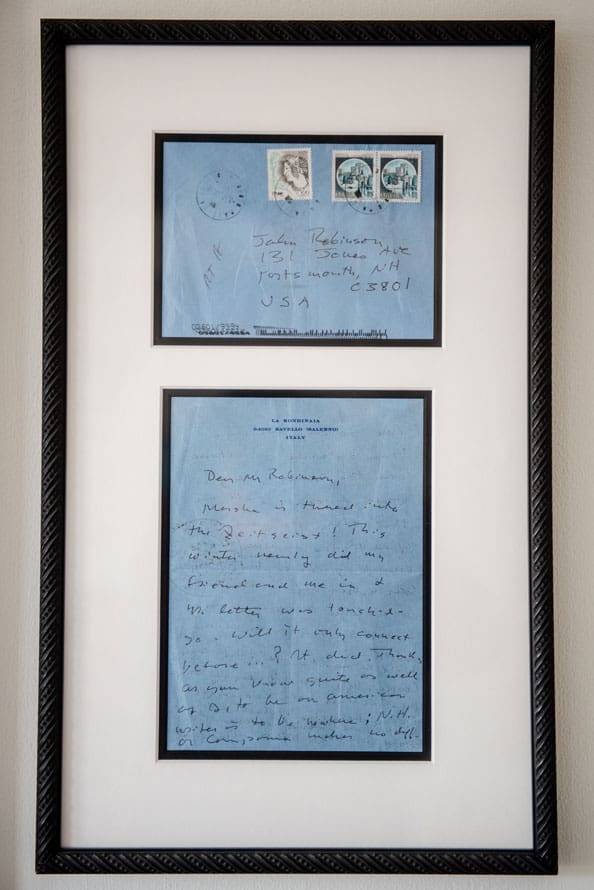 John Robinson
131 Jones Ave
Portsmouth, NH
03801
USA
LA RONDINAIA
84010 RAVELLO (SALERNO)
ITALY
Dear Mr Robinson,
is tuned into
the Zeitgeist! This
winter nearly did my
friend and me in &
letter was touch-&-
go. Will it only connect
before...? It did. Thanks,
as you know quite as well
as I, to be an american
writer is to be nowhere; N.H.
or Campania makes no diff-